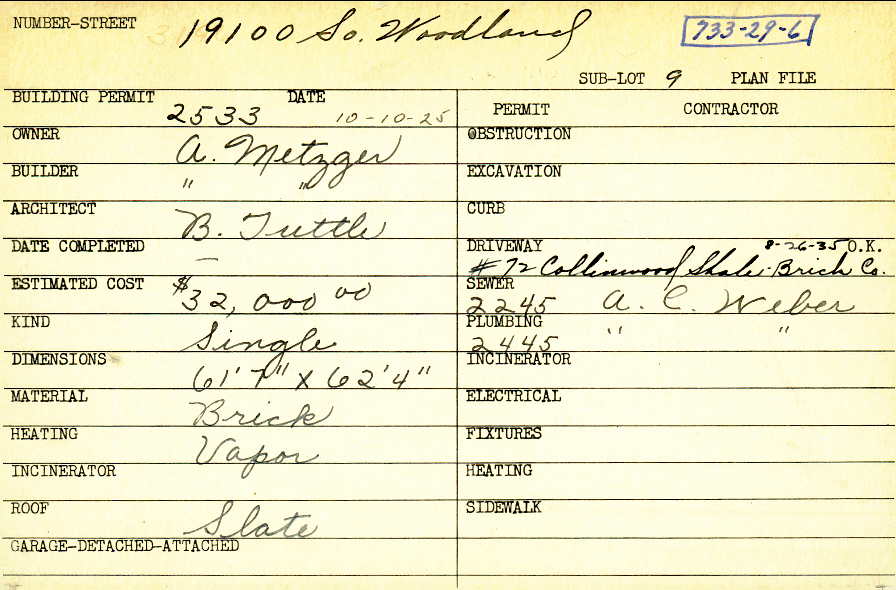 NUMBER-STREET 19100 So. Woodland 733-29-6
SUB-LOT 9 PLAN FILE
BUILDING PERMIT 2533 DATE 10-10-25
OWNER A. Metzger
BUILDER " "
ARCHITECT B. Tuttle
DATE COMPLETED —
ESTIMATED COST $32,000 00
KIND Single
DIMENSIONS 61'7" X 62'4"
MATERIAL Brick
HEATING Vapor
INCINERATOR
ROOF Slate
GARAGE-DETACHED-ATTACHED
PERMIT CONTRACTOR
OBSTRUCTION
EXCAVATION
CURB
DRIVEWAY 8-26-35 O.K.
#72 Collinwood Shale-Brick Co.
SEWER
2245 A. C. Weber
PLUMBING
2445 " "
INCINERATOR
ELECTRICAL
FIXTURES
HEATING
SIDEWALK